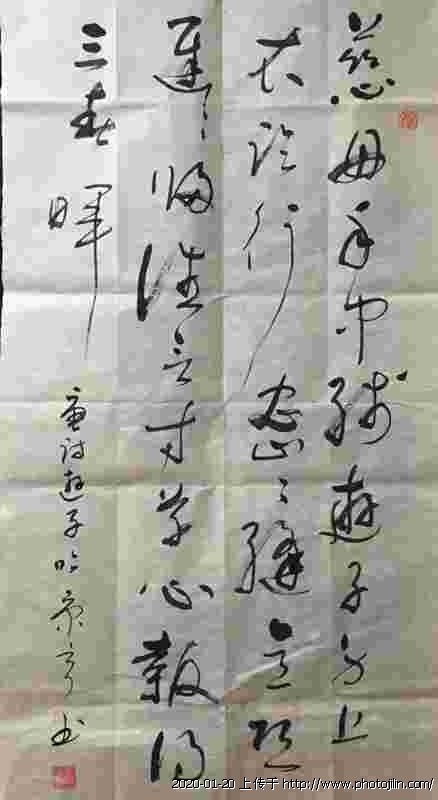 慈母手中线遊子身上
衣临行密〻縫意恐
遲〻归谁言寸草心報得
三春暉
唐诗遊子吟 书
2020-01-20 上传于 http://www.photojilin.com